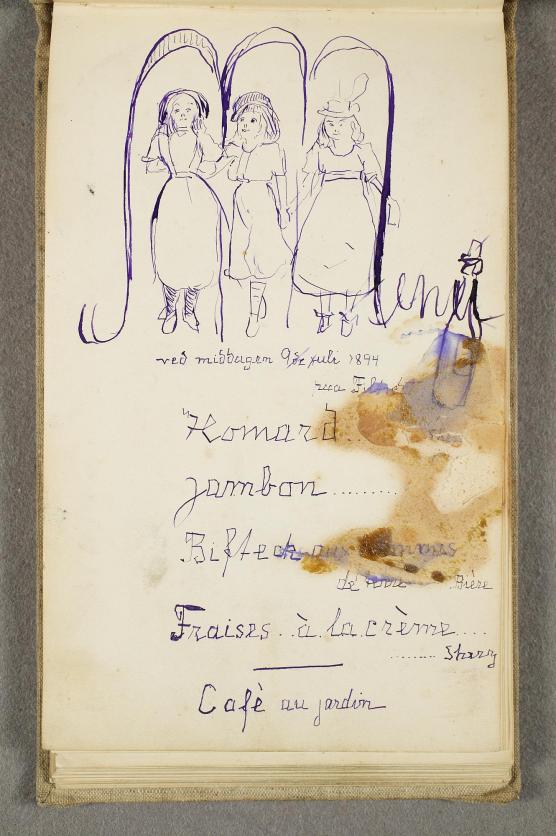 Menu
ved middagen 9de Juli 1894
paa
Homard
Jambon.........
Bifteck aux pommes
de terre Bière
Fraises..à.la.crème....
......... Sherry
Cafè au jardin